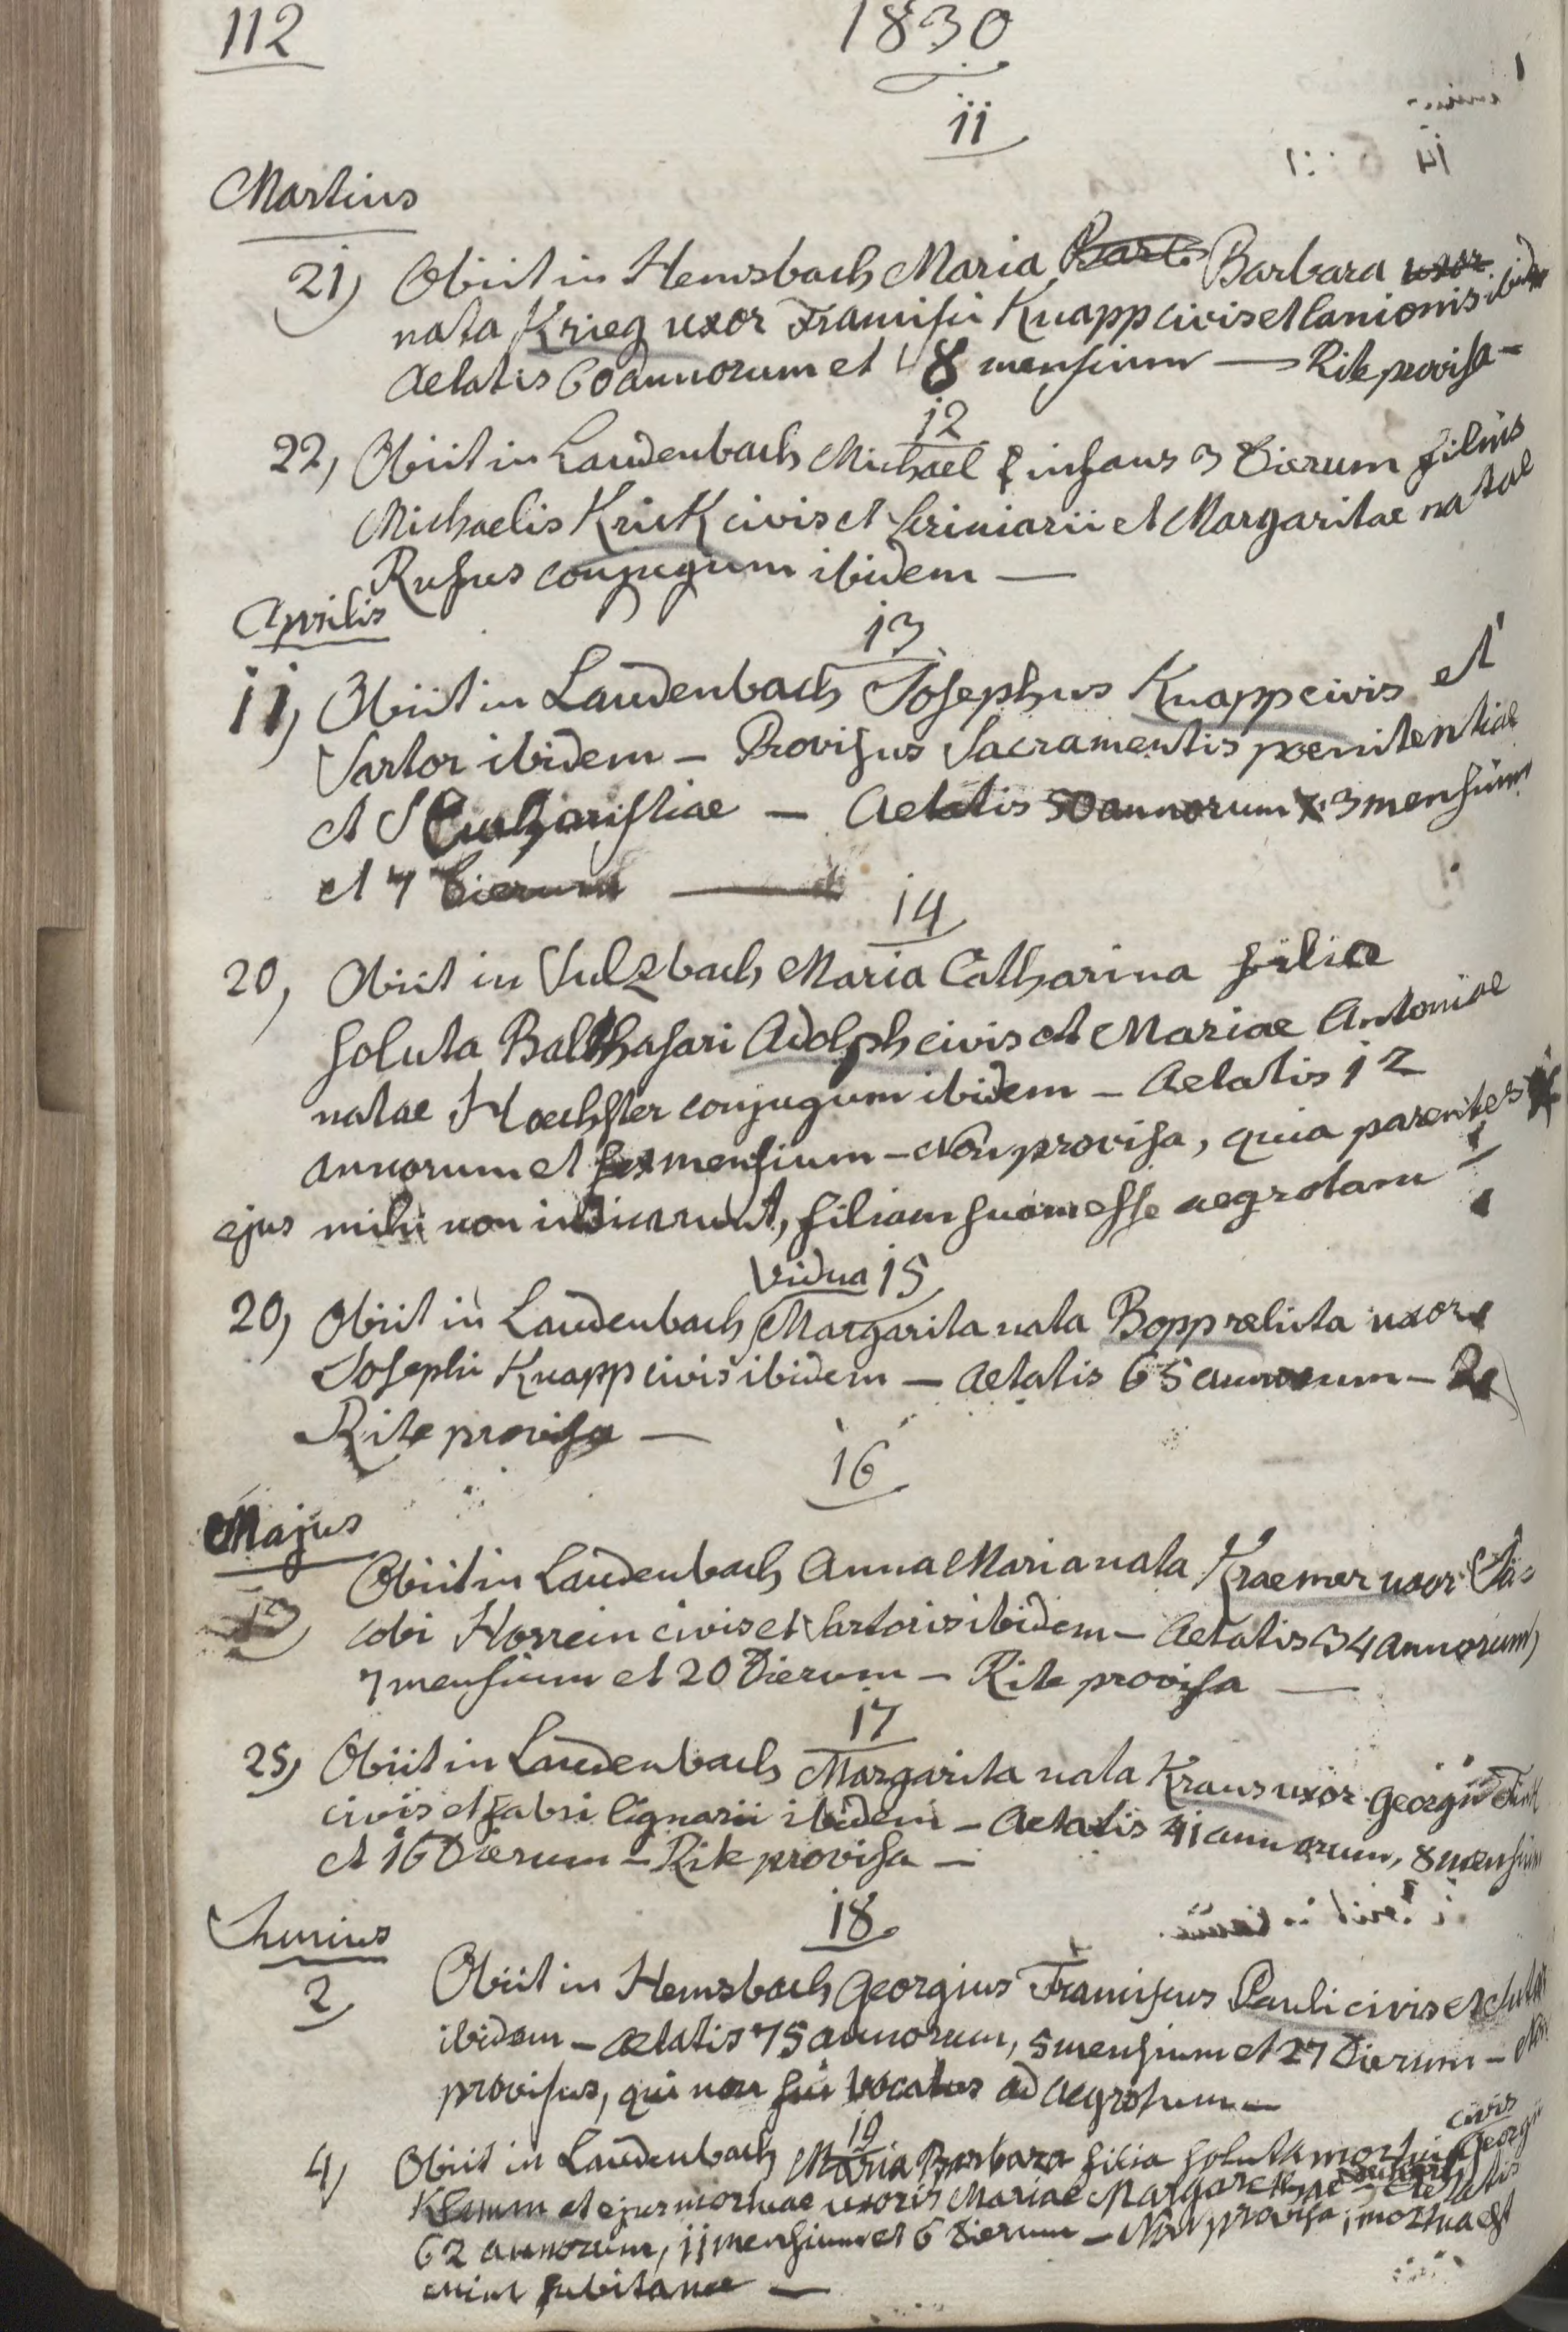 112
1830
11
Martius
21) Obiit in Hemsbach Maria Barb Barbara uxor
nata Krieg uxor Francisci Knapp civis et lanionis ibidem
Aetatis 60 annorum et 8 mensium — Rite provisa —
12
22, Obiit in Laudenbach Michael infans 3 dierum filius
Michaelis Krick civis et scriniarii et Margaritae natae
Rufus conjugum ibidem —
Aprilis
13
11, Obiit in Laudenbach Josephus Knapp civis et
Sartor ibidem — Provisus Sacramentis poenitentiae
et S Eucharistiae — Aetatis 50 annorum 3 mensium
et 7 dierum —
14
20, Obiit in Sulzbach Maria Catharina filia
soluta Balthasari Adolph civis et Mariae Antoniae
natae Hoechster conjugum ibidem — Aetatis 12
annorum et sex mensium — Non provisa, quia parentes
ejus mihi non indicarunt, filiam suam esse aegrotam!
Vidua 15
20, Obiit in Laudenbach Margarita nata Bopp relicta uxor
Josephi Knapp civis ibidem — Aetatis 65 annorum —
Rite provisa —
16
Majus
13) Obiit in Laudenbach Anna Maria nata Kraemer uxor Ja=
cobi Horrein civis et Sartoris ibidem — Aetatis 34 annorum,
7 mensium et 20 dierum — Rite provisa —
17
25, Obiit in Laudenbach Margarita nata Kraus uxor Georgii
civis et fabri lignarii ibidem — Aetatis 41 annorum, 8 mensium
et 16 dierum — Rite provisa —
Junius
18
2, Obiit in Hemsbach Georgius Franciscus Pauli civis et
ibidem — aetatis 75 annorum, 5 mensium et 27 dierum — Non
provisus, qui non fui vocatus ad aegrotum —
19
civis
4, Obiit in Laudenbach Maria Barbara filia soluta mortui Georgii
Klemm et ejus mortuae uxoris Mariae Margarethae — Aetatis
62 annorum, 11 mensium et 6 dierum — Non provisa, mortua est
enim subitanee —